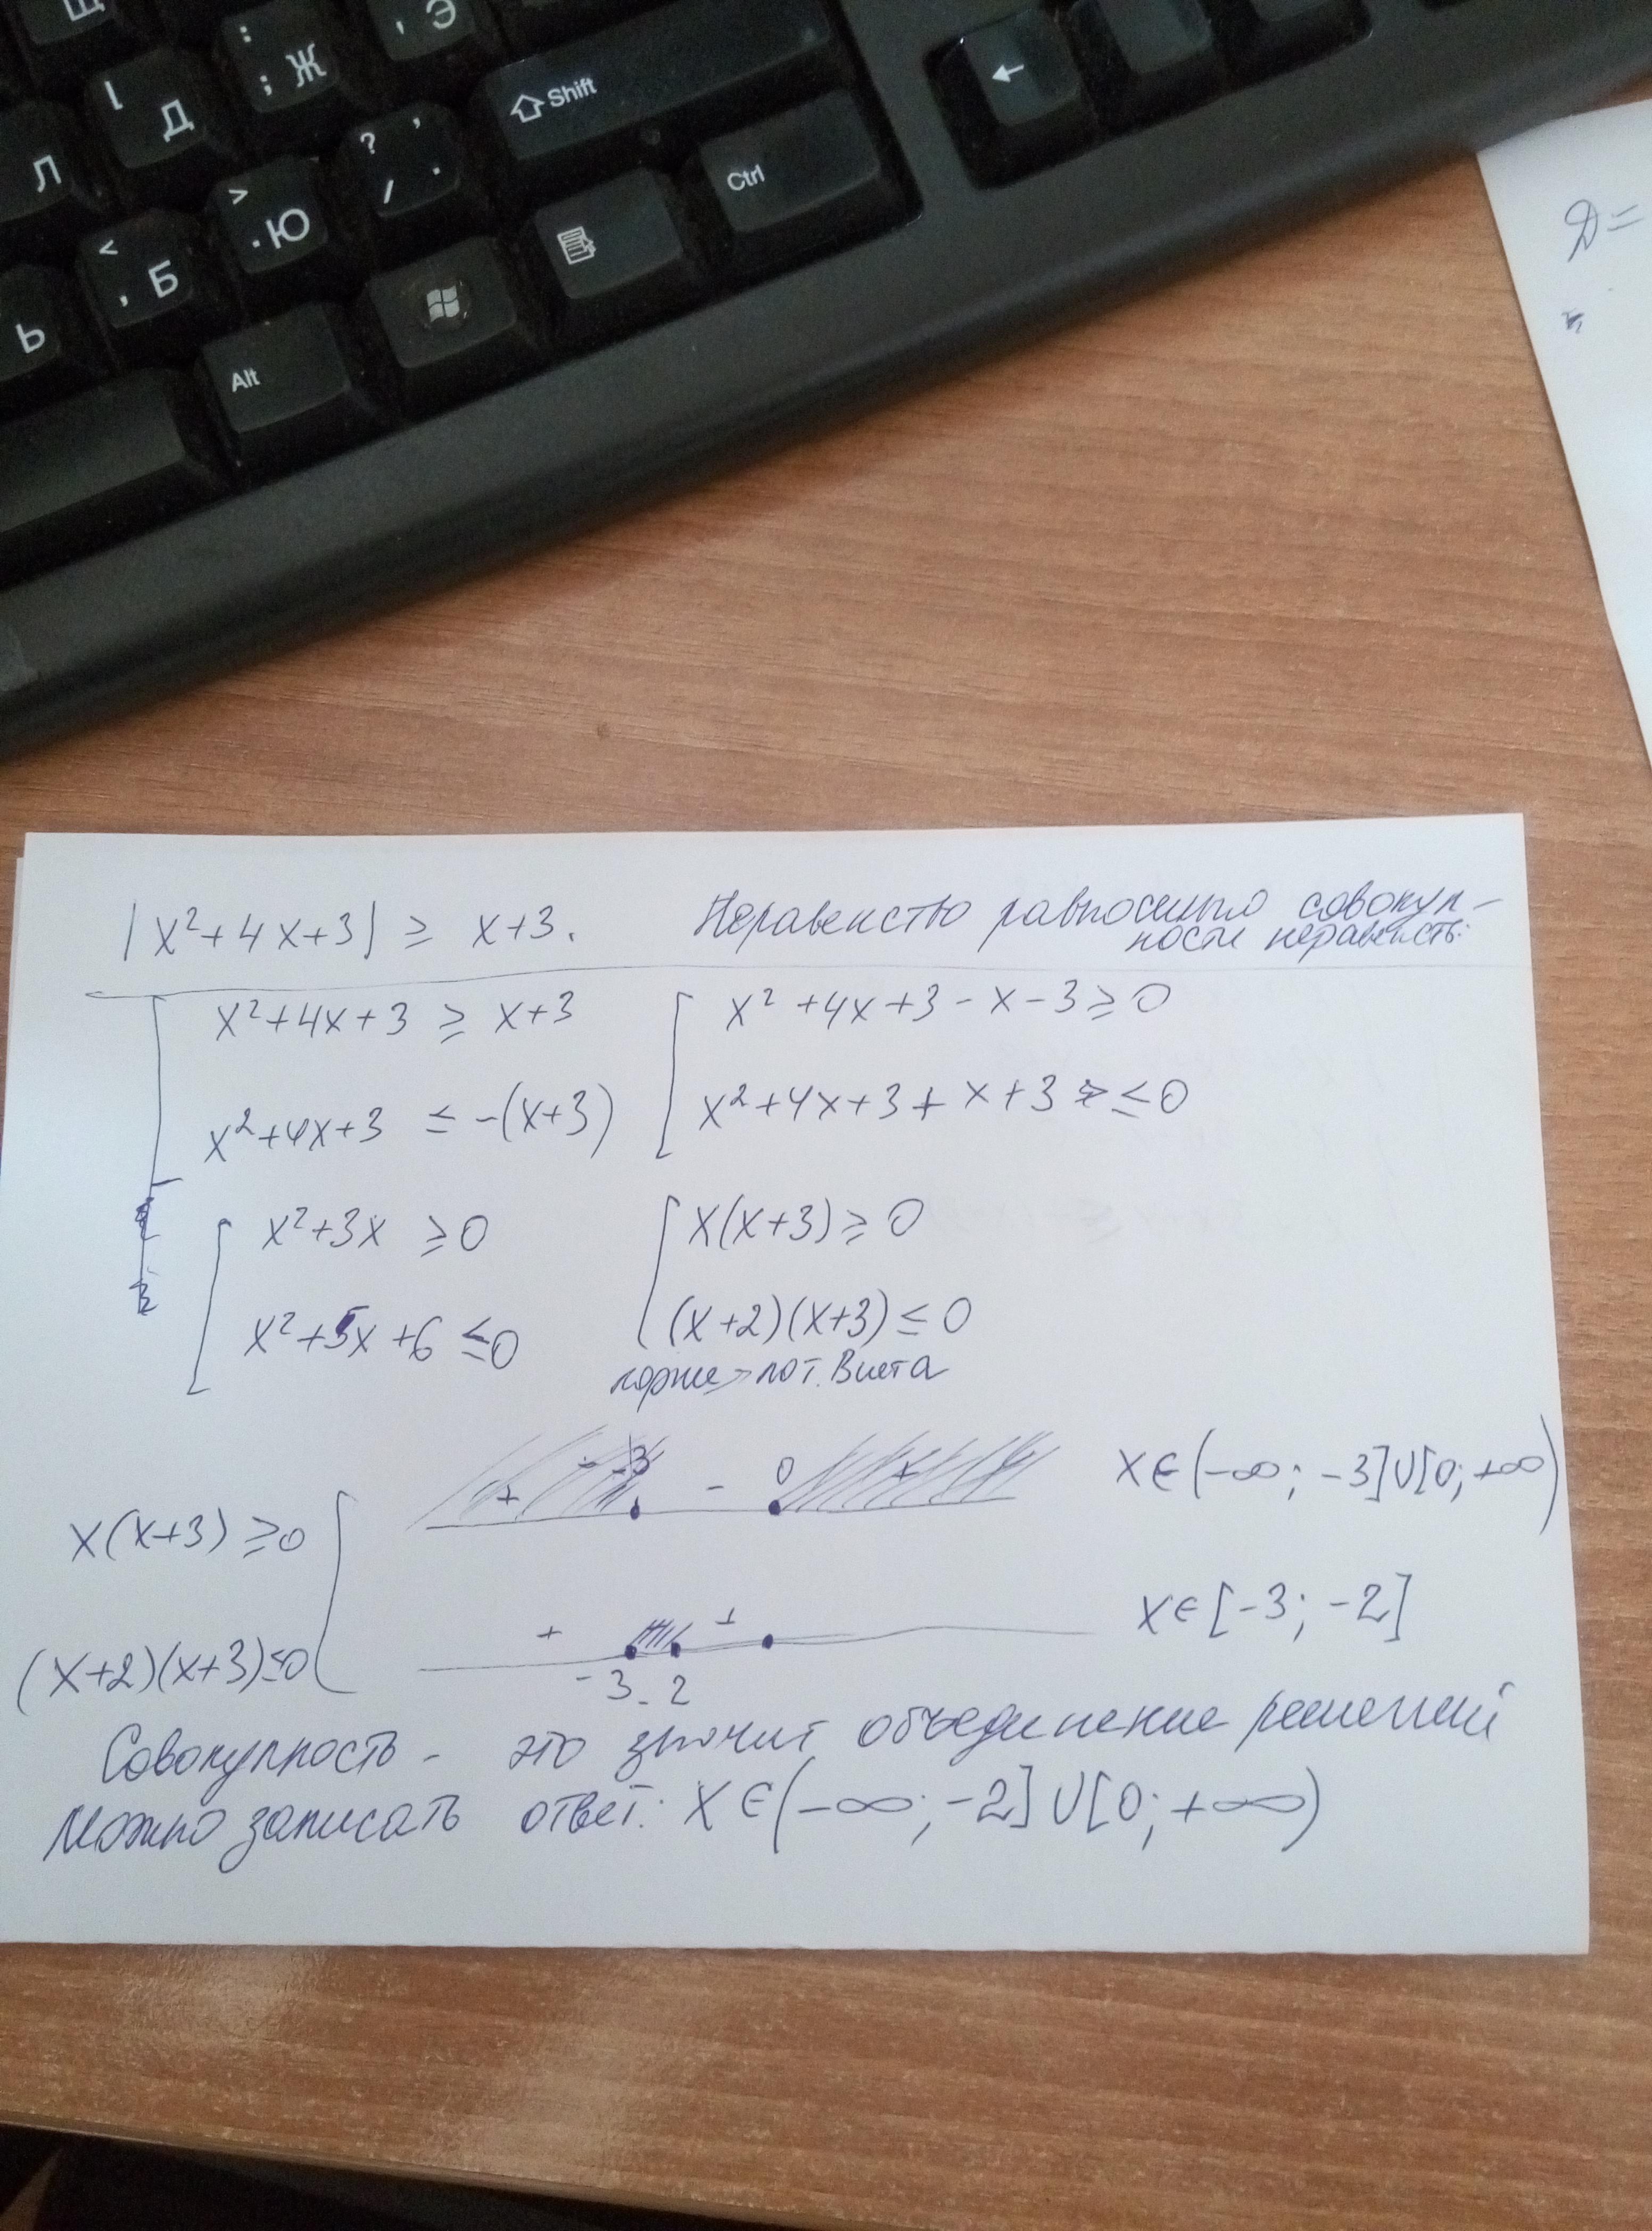 Щ
: ; Ж
, Э
[ Д
Л
⇧ Shift
←
? , / .
> . Ю
< , Б
Ь
Ctrl
Alt
D =
|x²+4x+3| ≥ x+3. Неравенство равносильно совокуп-
ности неравенств:
x²+4x+3 ≥ x+3
x²+4x+3 ≤ -(x+3)
x²+4x+3-x-3 ≥ 0
x²+4x+3+x+3 ≤ 0
x²+3x ≥ 0
x²+5x+6 ≤ 0
x(x+3) ≥ 0
(x+2)(x+3) ≤ 0
корни по т. Виета
x(x+3) ≥ 0
+ -3 - 0 +
x∈(-∞; -3]∪[0; +∞)
(x+2)(x+3) ≤ 0
+ +
-3 -2
x∈[-3; -2]
Совокупность - это значит объединение решений
Можно записать ответ: x∈(-∞; -2]∪[0; +∞)